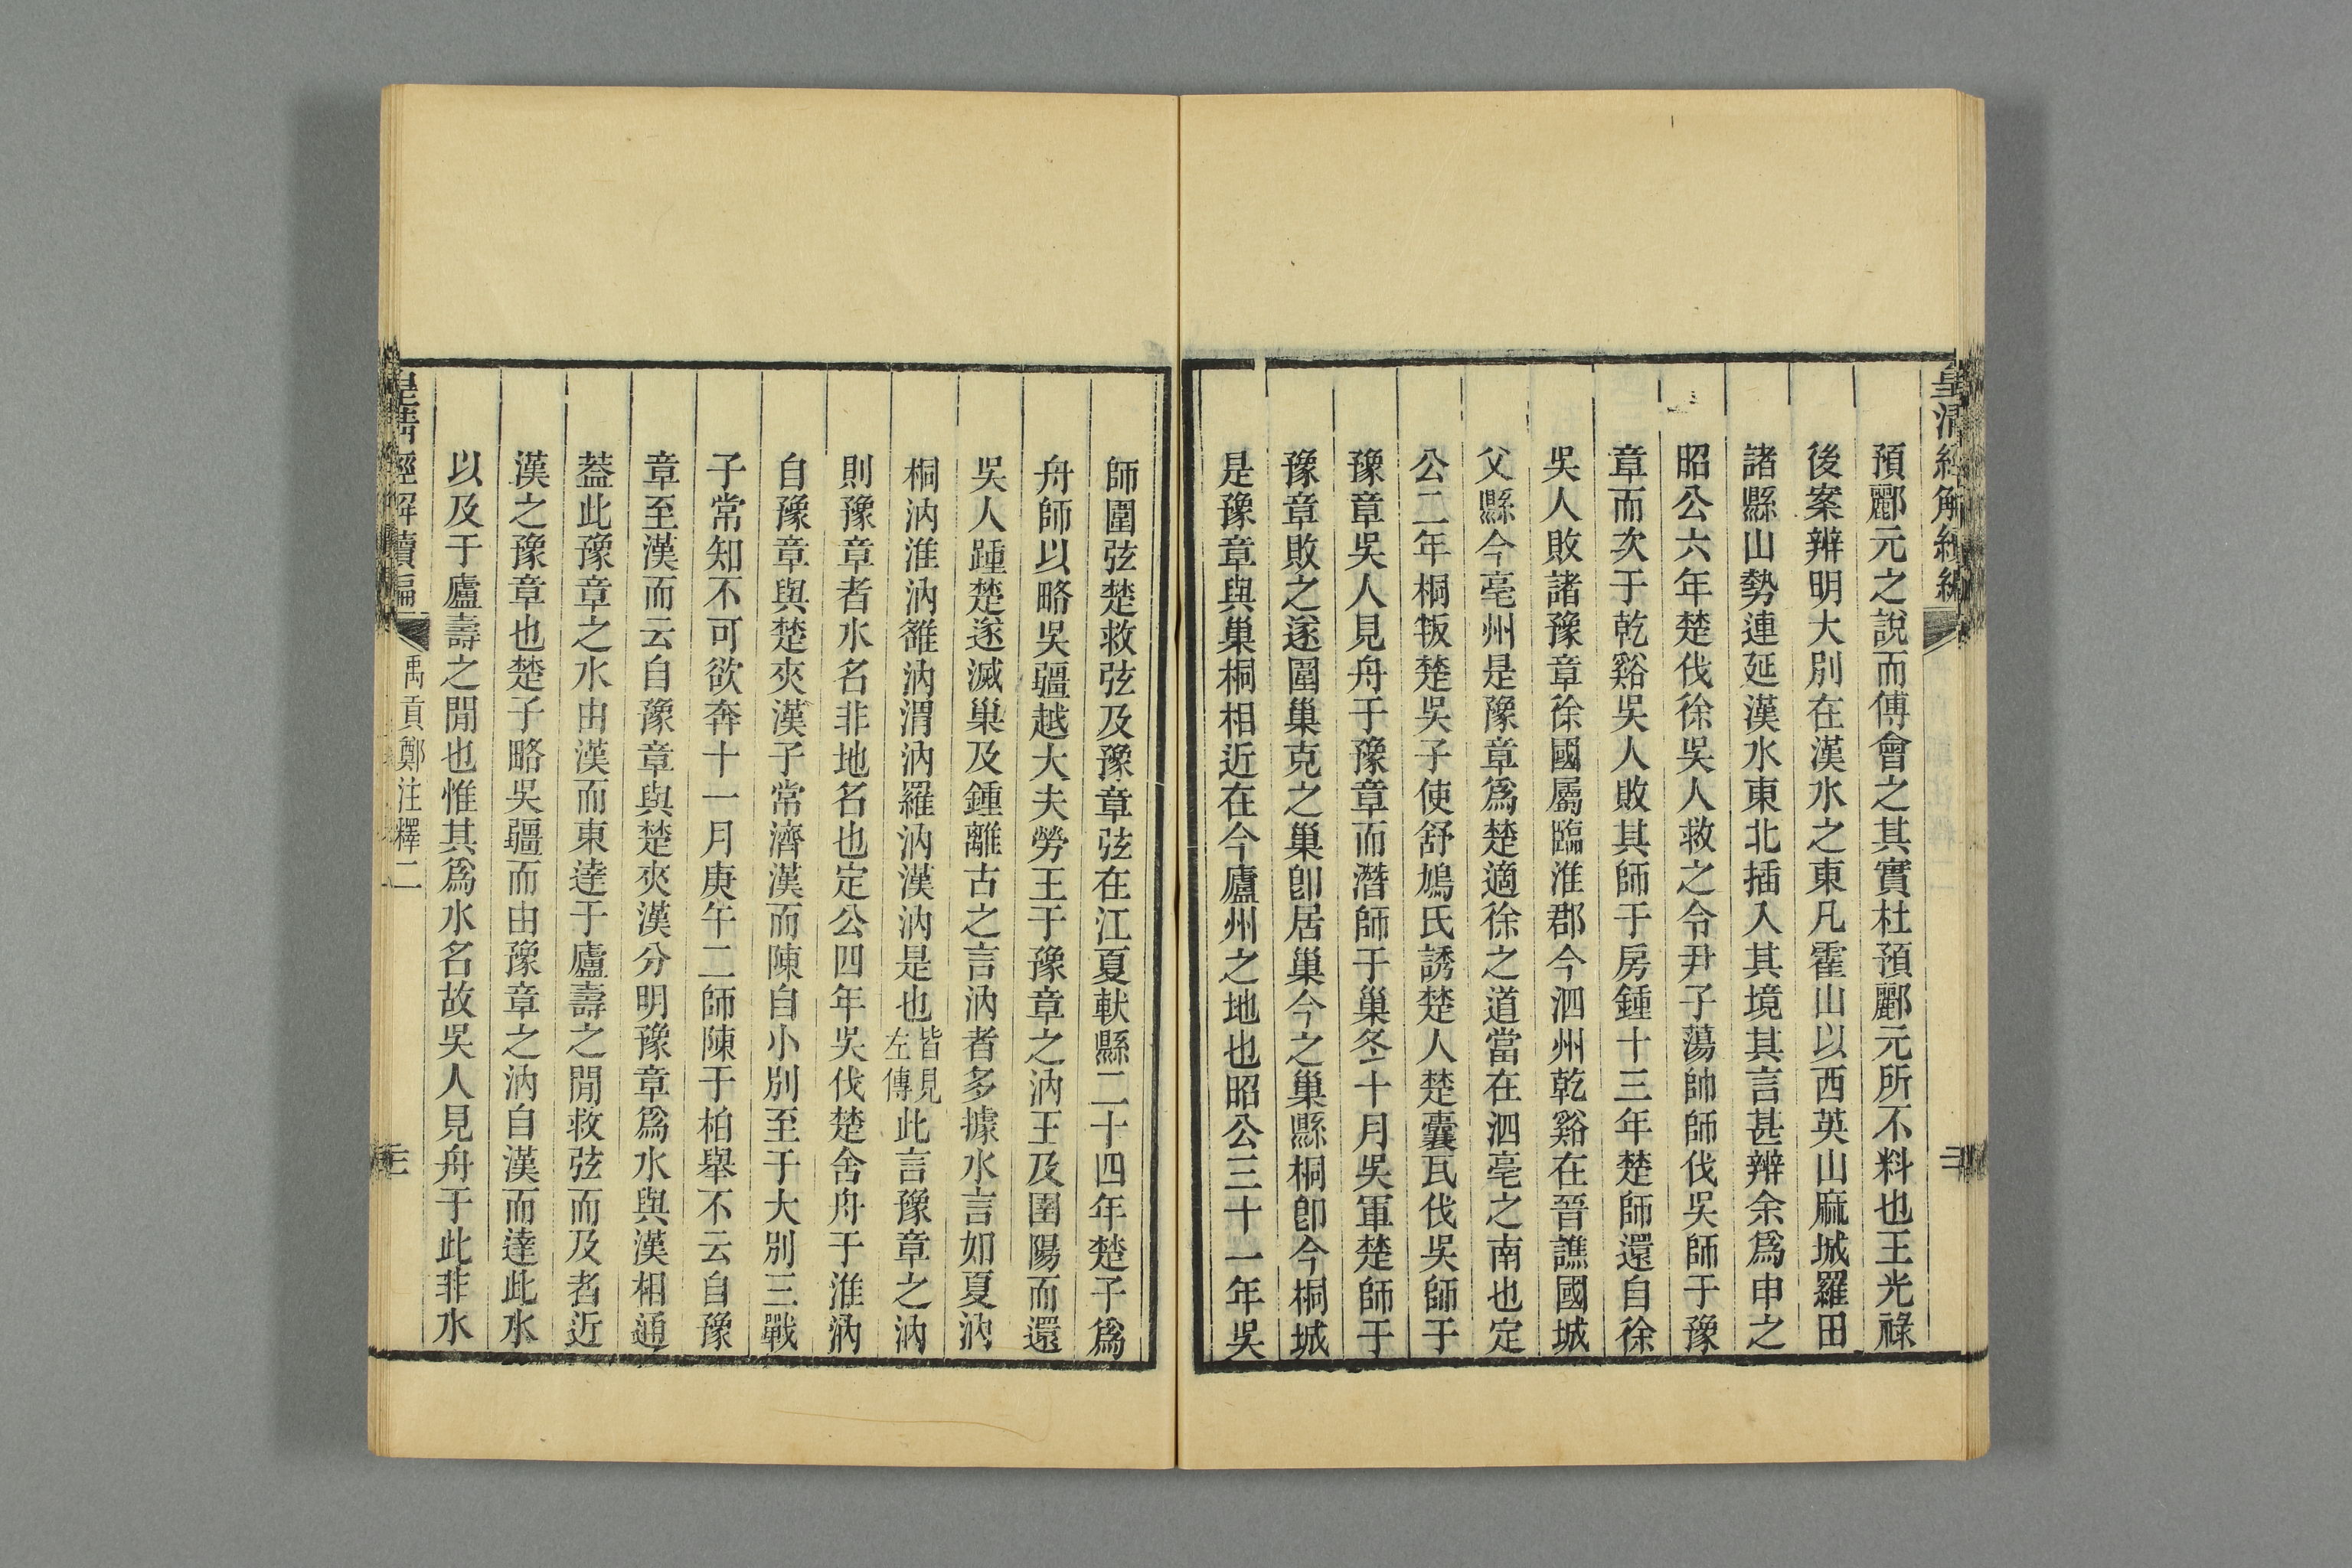 皇清經解續編
預酈元之說而傅會之其實杜預酈元所不料也王光祿
後案辨明大別在漢水之東凡霍山以西英山麻城羅田
諸縣山勢連延漢水東北插入其境其言甚辨余爲申之
昭公六年楚伐徐吳人救之令尹子蕩帥師伐吳師于豫
章而次于乾谿吳人敗其師于房鍾十三年楚師還自徐
吳人敗諸豫章徐國屬臨淮郡今泗州乾谿在晉譙國城
父縣今亳州是豫章爲楚適徐之道當在泗亳之南也定
公二年桐叛楚吳子使舒鳩氏誘楚人楚囊瓦伐吳師于
豫章吳人見舟于豫章而潛師于巢冬十月吳軍楚師于
豫章敗之遂圍巢克之巢卽居巢今之巢縣桐卽今桐城
是豫章與巢桐相近在今廬州之地也昭公三十一年吳
師圍弦楚救弦及豫章弦在江夏軑縣二十四年楚子爲
舟師以略吳疆越大夫勞王于豫章之汭王及圉陽而還
吳人踵楚遂滅巢及鍾離古之言汭者多據水言如夏汭
桐汭淮汭雒汭渭汭羅汭漢汭是也皆見左傳此言豫章之汭
則豫章者水名非地名也定公四年吳伐楚舍舟于淮汭
自豫章與楚夾漢子常濟漢而陳自小別至于大別三戰
子常知不可欲奔十一月庚午二師陳于柏舉不云自豫
章至漢而云自豫章與楚夾漢分明豫章爲水與漢相通
葢此豫章之水由漢而東達于廬壽之閒救弦而及者近
漢之豫章也楚子略吳疆而由豫章之汭自漢而達此水
以及于廬壽之閒也惟其爲水名故吳人見舟于此非水
皇清經解續編
禹貢鄭注釋二
三